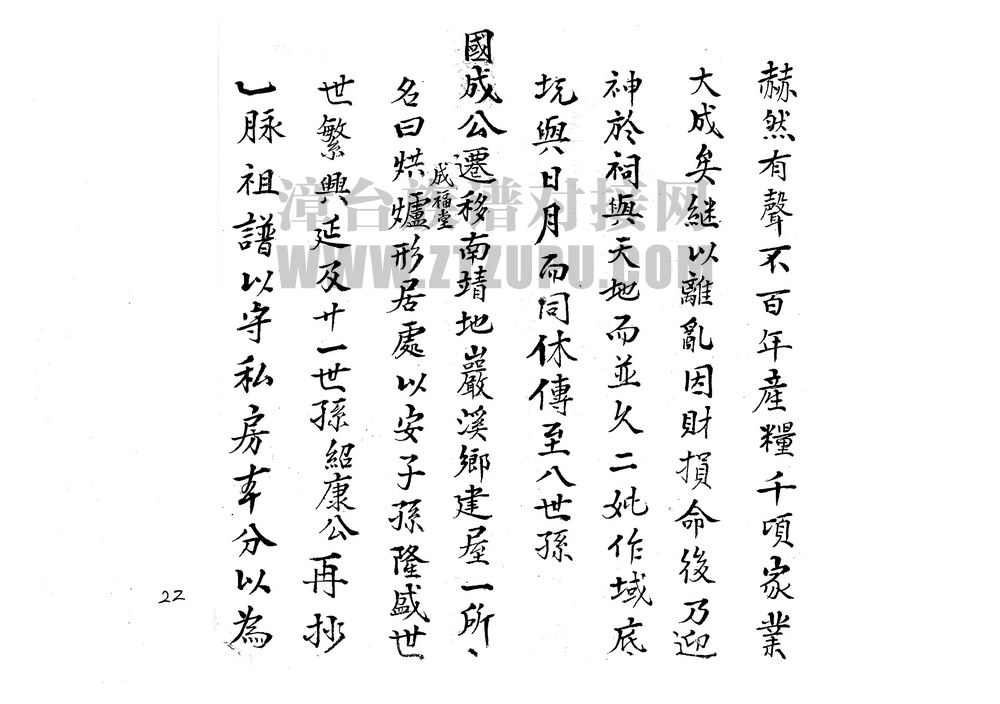 赫然有聲不百年產糧千項家業
大成矣継以離亂因財損命後乃迎
神於祠與天地而並久二妣作域底
坑與日月而同休傳至八世孫
國成公遷移南靖地巖溪鄉建屋一所、
成福堂
名曰烘爐形居處以安子孫隆盛世
世繁興延及廿一世孫紹康公再抄
乚脉祖譜以守私房本分以為
漳台族谱对接网
www.ztzupu.com
22